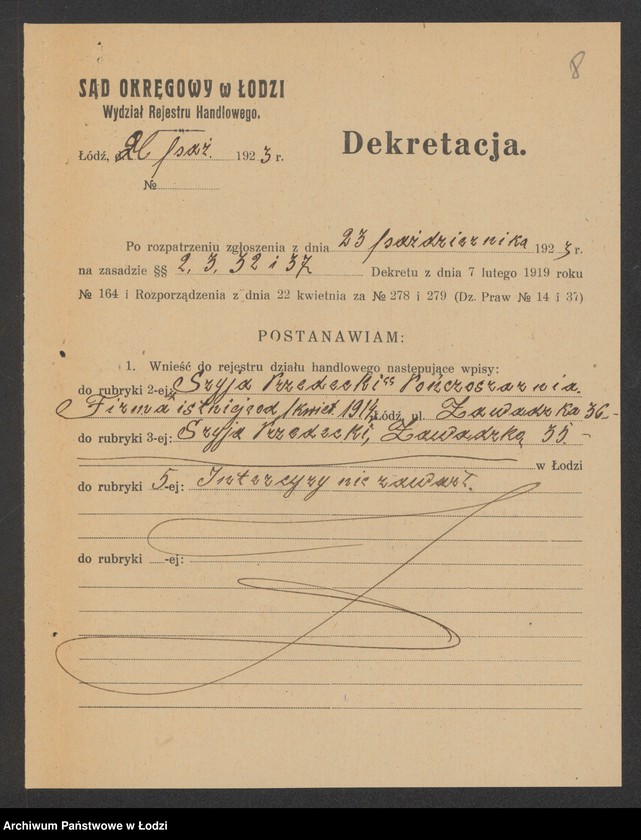 8
SĄD OKRĘGOWY w ŁODZI
Wydział Rejestru Handlowego.
Dekretacja.
Łódź, d. paź. 1923 r.
№
Po rozpatrzeniu zgłoszenia z dnia 23 października 1923 r.
na zasadzie §§ 2, 3, 32 i 37 Dekretu z dnia 7 lutego 1919 roku
№ 164 i Rozporządzenia z dnia 22 kwietnia za № 278 i 279 (Dz. Praw № 14 i 37)
POSTANAWIAM:
1. Wnieść do rejestru działu handlowego następujące wpisy:
do rubryki 2-ej: „Szyja Przedecki" Pończoszarnia.
Firma istnieje od 1 kwiet. Łódź, ul. Zawadzka 36.-
do rubryki 3-ej: Szyja Przedecki, Zawadzka 35.-
w Łodzi
do rubryki 5-ej: Intercyzy nie zawarł.
do rubryki -ej:
Archiwum Państwowe w Łodzi